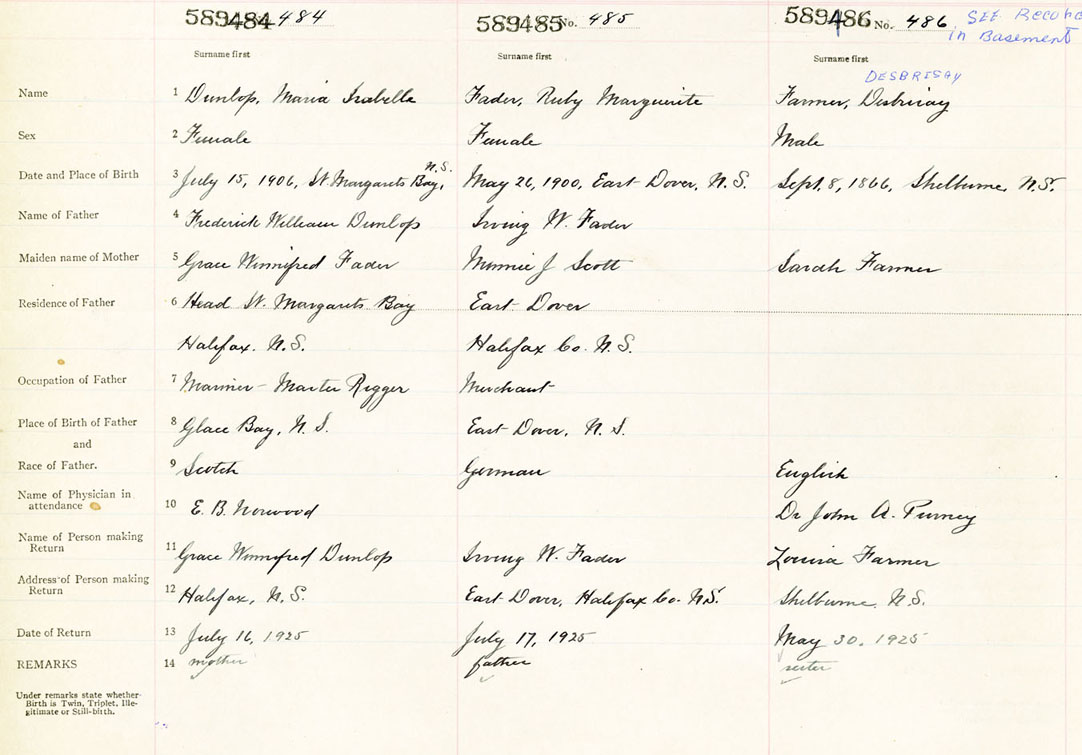 589484 484 589485 No. 485 589486 No. 486 SEE Record
in Basement
Surname first Surname first Surname first
DESBRISAY
Name 1 Dunlop, Maria Isabelle Fader, Ruby Marguerite Farmer, Desbrisay
Sex 2 Female Female Male
N.S.
Date and Place of Birth 3 July 15, 1906, St. Margarets Bay, May 26, 1900, East Dover, N.S. Sept. 8, 1866, Shelburne, N.S.
Name of Father 4 Frederick William Dunlop Irving W. Fader
Maiden name of Mother 5 Grace Winnifred Fader Minnie J Scott Sarah Farmer
Residence of Father 6 Head St. Margarets Bay East Dover
Halifax. N.S. Halifax Co. N.S.
Occupation of Father 7 Mariner - Master Rigger Merchant
Place of Birth of Father 8 Glace Bay, N.S. East Dover, N.S.
and
Race of Father. 9 Scotch German English
Name of Physician in
attendance 10 E. B. Norwood Dr John A. Purney
Name of Person making
Return 11 Grace Winnifred Dunlop Irving W. Fader Louisa Farmer
Address of Person making
Return 12 Halifax, N.S. East Dover, Halifax Co. N.S. Shelburne, N.S.
Date of Return 13 July 16, 1925 July 17, 1925 May 30, 1925
REMARKS 14 mother father sister
Under remarks state whether
Birth is Twin, Triplet, Ille-
gitimate or Still-birth.